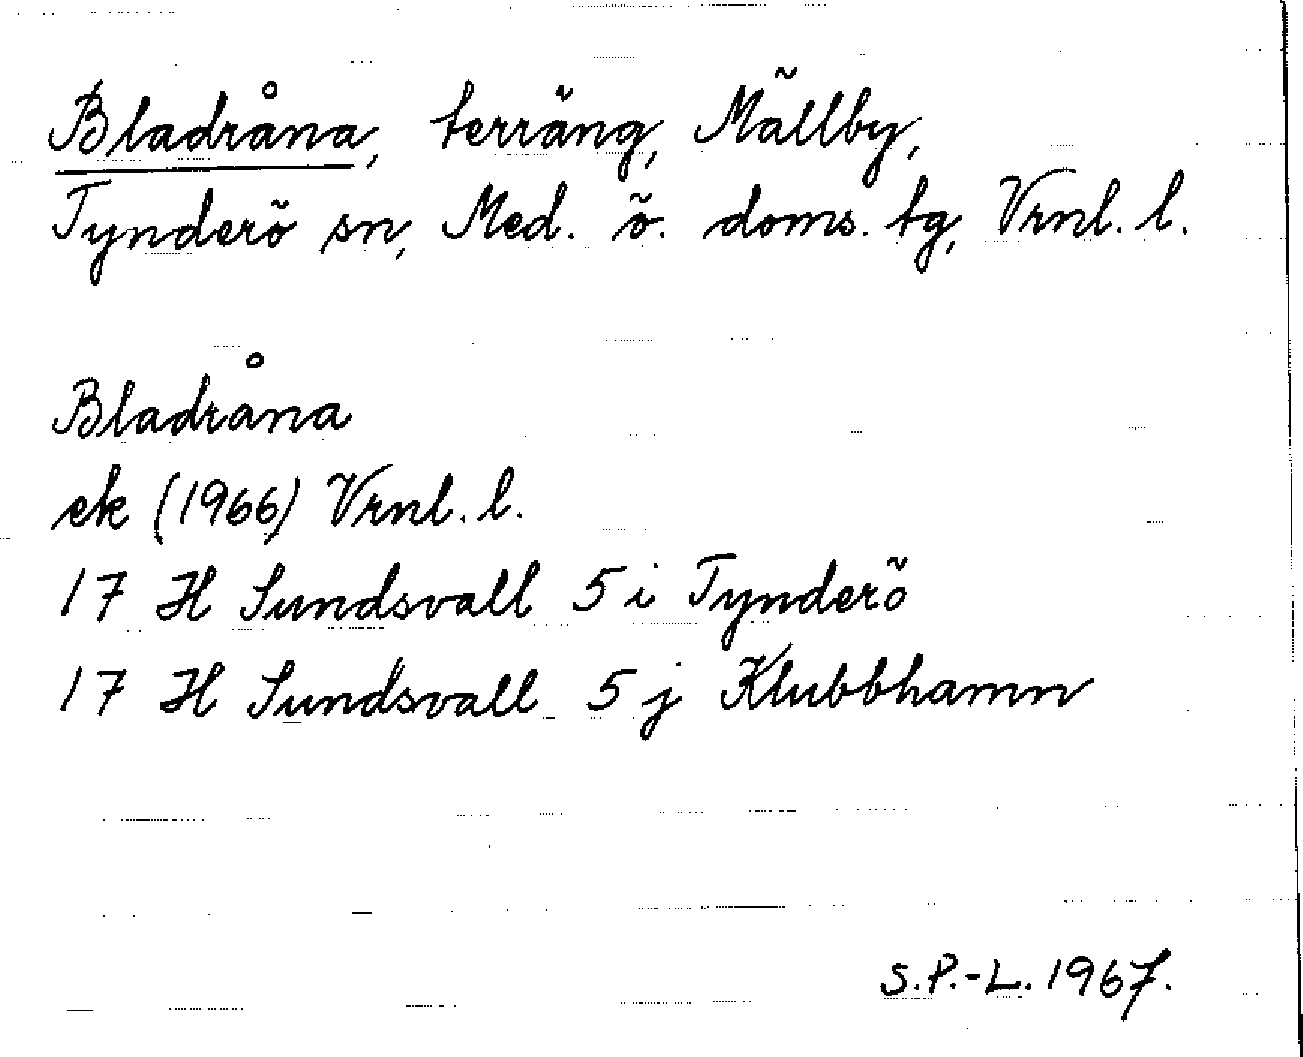 Bladråna, terräng, Mällby,
Tynderö sn, Med. ö. doms. tg, Vrnl. l.
Bladråna
ek (1966) Vrnl. l.
17 H Sundsvall 5 i Tynderö
17 H Sundsvall 5 j Klubbhamn
S.P.-L. 1967.